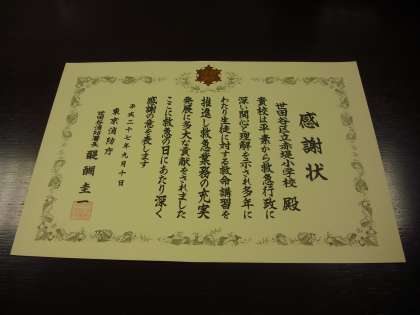 感謝状
世田谷区立赤堤小学校 殿
貴校は平素から救急行政に
深い関心と理解を示され多年に
わたり生徒に対する救命講習を
推進し救急業務の充実
発展に多大な貢献をされました
ここに救急の日にあたり深く
感謝の意を表します
平成二十七年九月十日
東京消防庁
世田谷消防署長 醍醐圭一